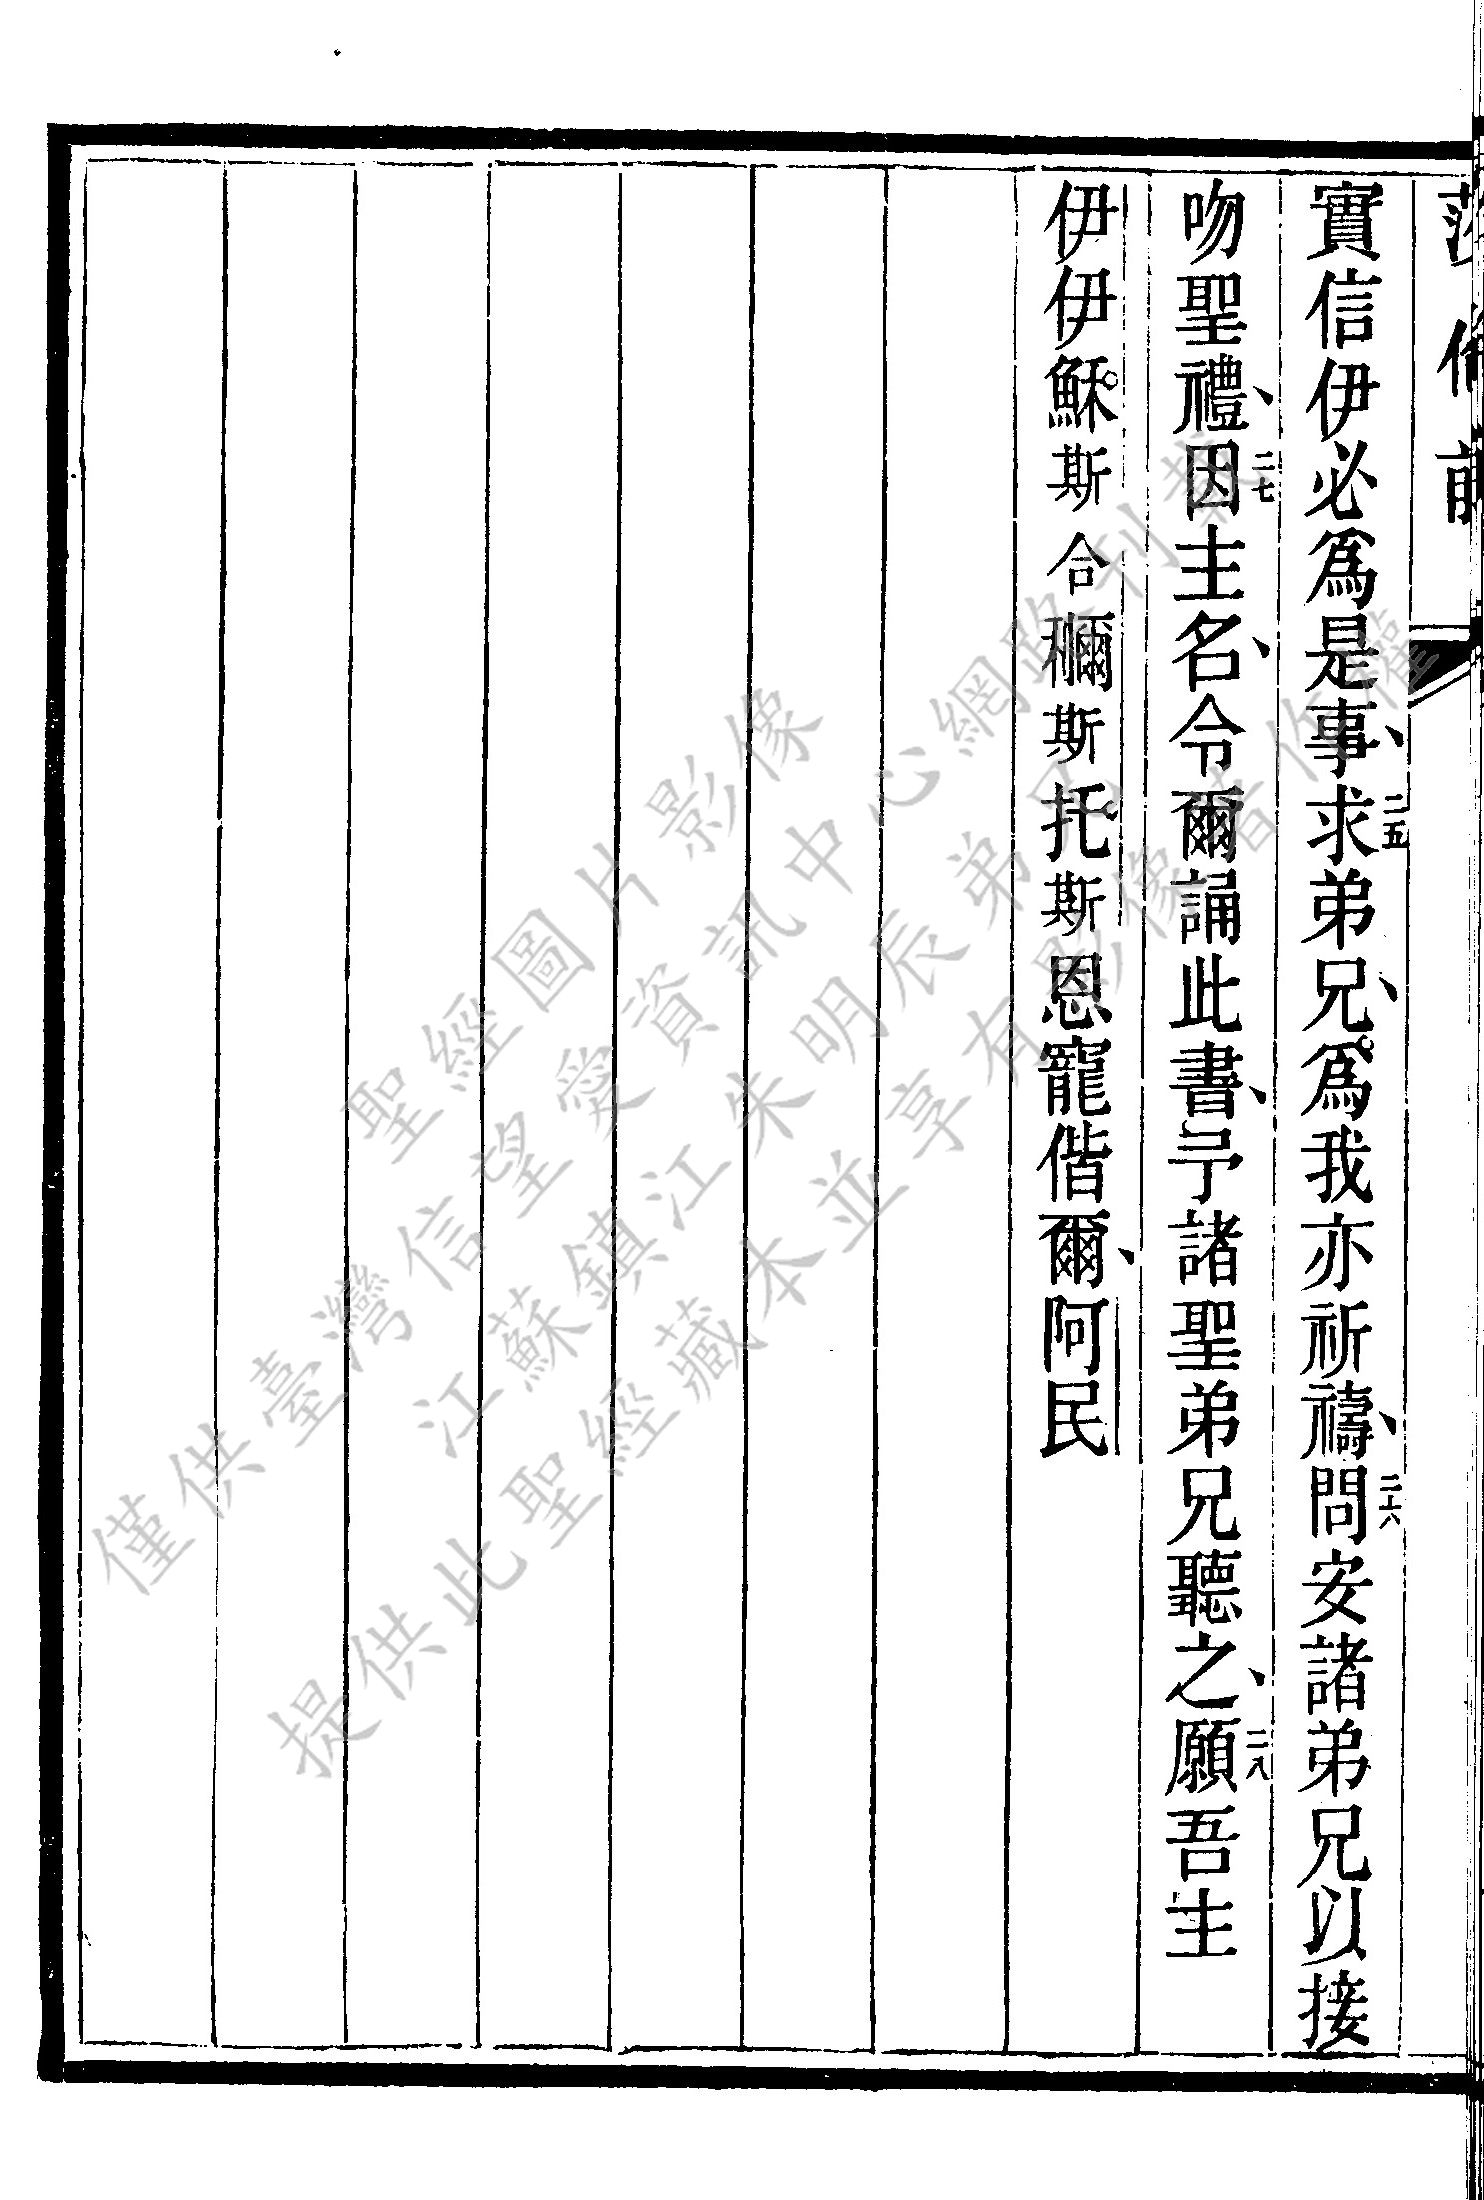 實信伊必爲是事、二五求弟兄、爲我亦祈禱、二六問安諸弟兄以接
吻聖禮、二七因主名、令爾誦此書、予諸聖弟兄聽之、二八願吾主
伊伊穌斯合穪斯托斯恩寵偕爾、阿民
聖經圖片影像
僅供臺灣信望愛資訊中心網路刊載
江蘇鎮江朱明辰弟兄
提供此聖經藏本並享有影像著作權